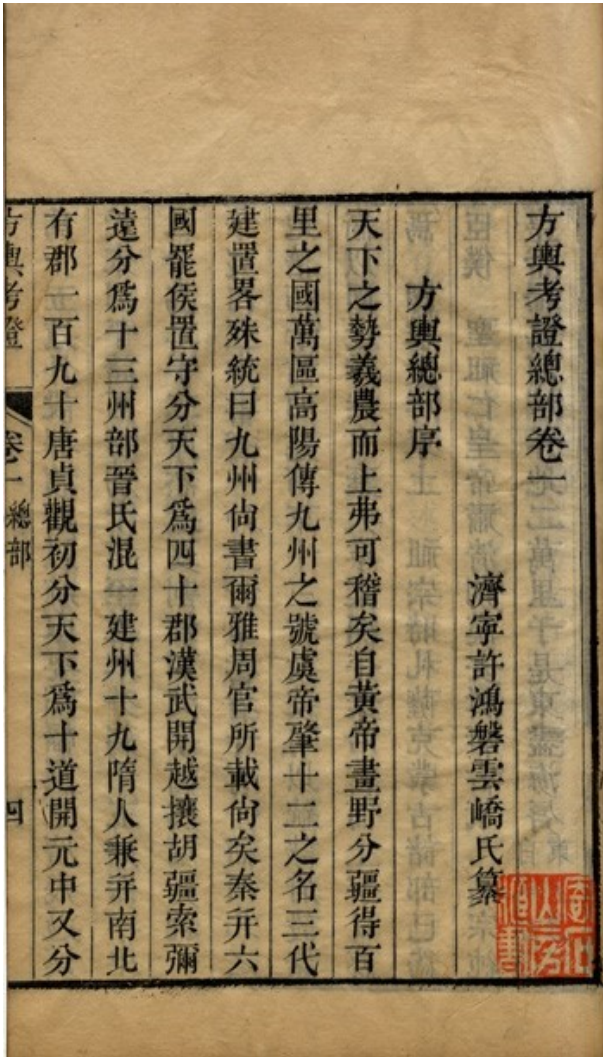 方輿考證總部卷一
濟寧許鴻磐雲嶠氏纂
方輿總部序
天下之勢羲農而上弗可稽矣自黃帝畫野分疆得百
里之國萬區高陽傳九州之號虞帝肇十二之名三代
建置畧殊統曰九州尙書爾雅周官所載尙矣秦幷六
國罷侯置守分天下爲四十郡漢武開越攘胡疆索彌
遠分爲十三州部晉氏混一建州十九隋人兼幷南北
有郡一百九十唐貞觀初分天下爲十道開元中又分
方輿考證 卷一 總部 四